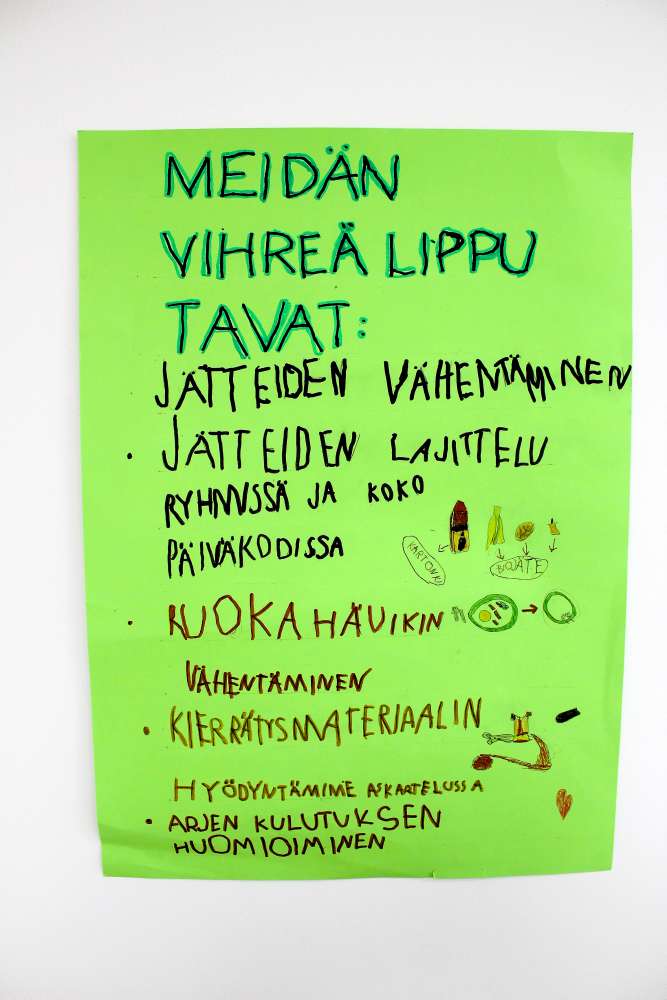 MEIDÄN
VIHREÄ LIPPU
TAVAT:
JÄTTEIDEN VÄHENTÄMINEN
• JÄTTEIDEN LAJITTELU
RYHMISSÄ JA KOKO
PÄIVÄKODISSA
KARTONKI
BIOJÄTE
• RUOKAHÄVIKIN
VÄHENTÄMINEN
• KIERRÄTYSMATERIAALIN
HYÖDYNTÄMIME ASKARTELUSSA
• ARJEN KULUTUKSEN
HUOMIOIMINEN